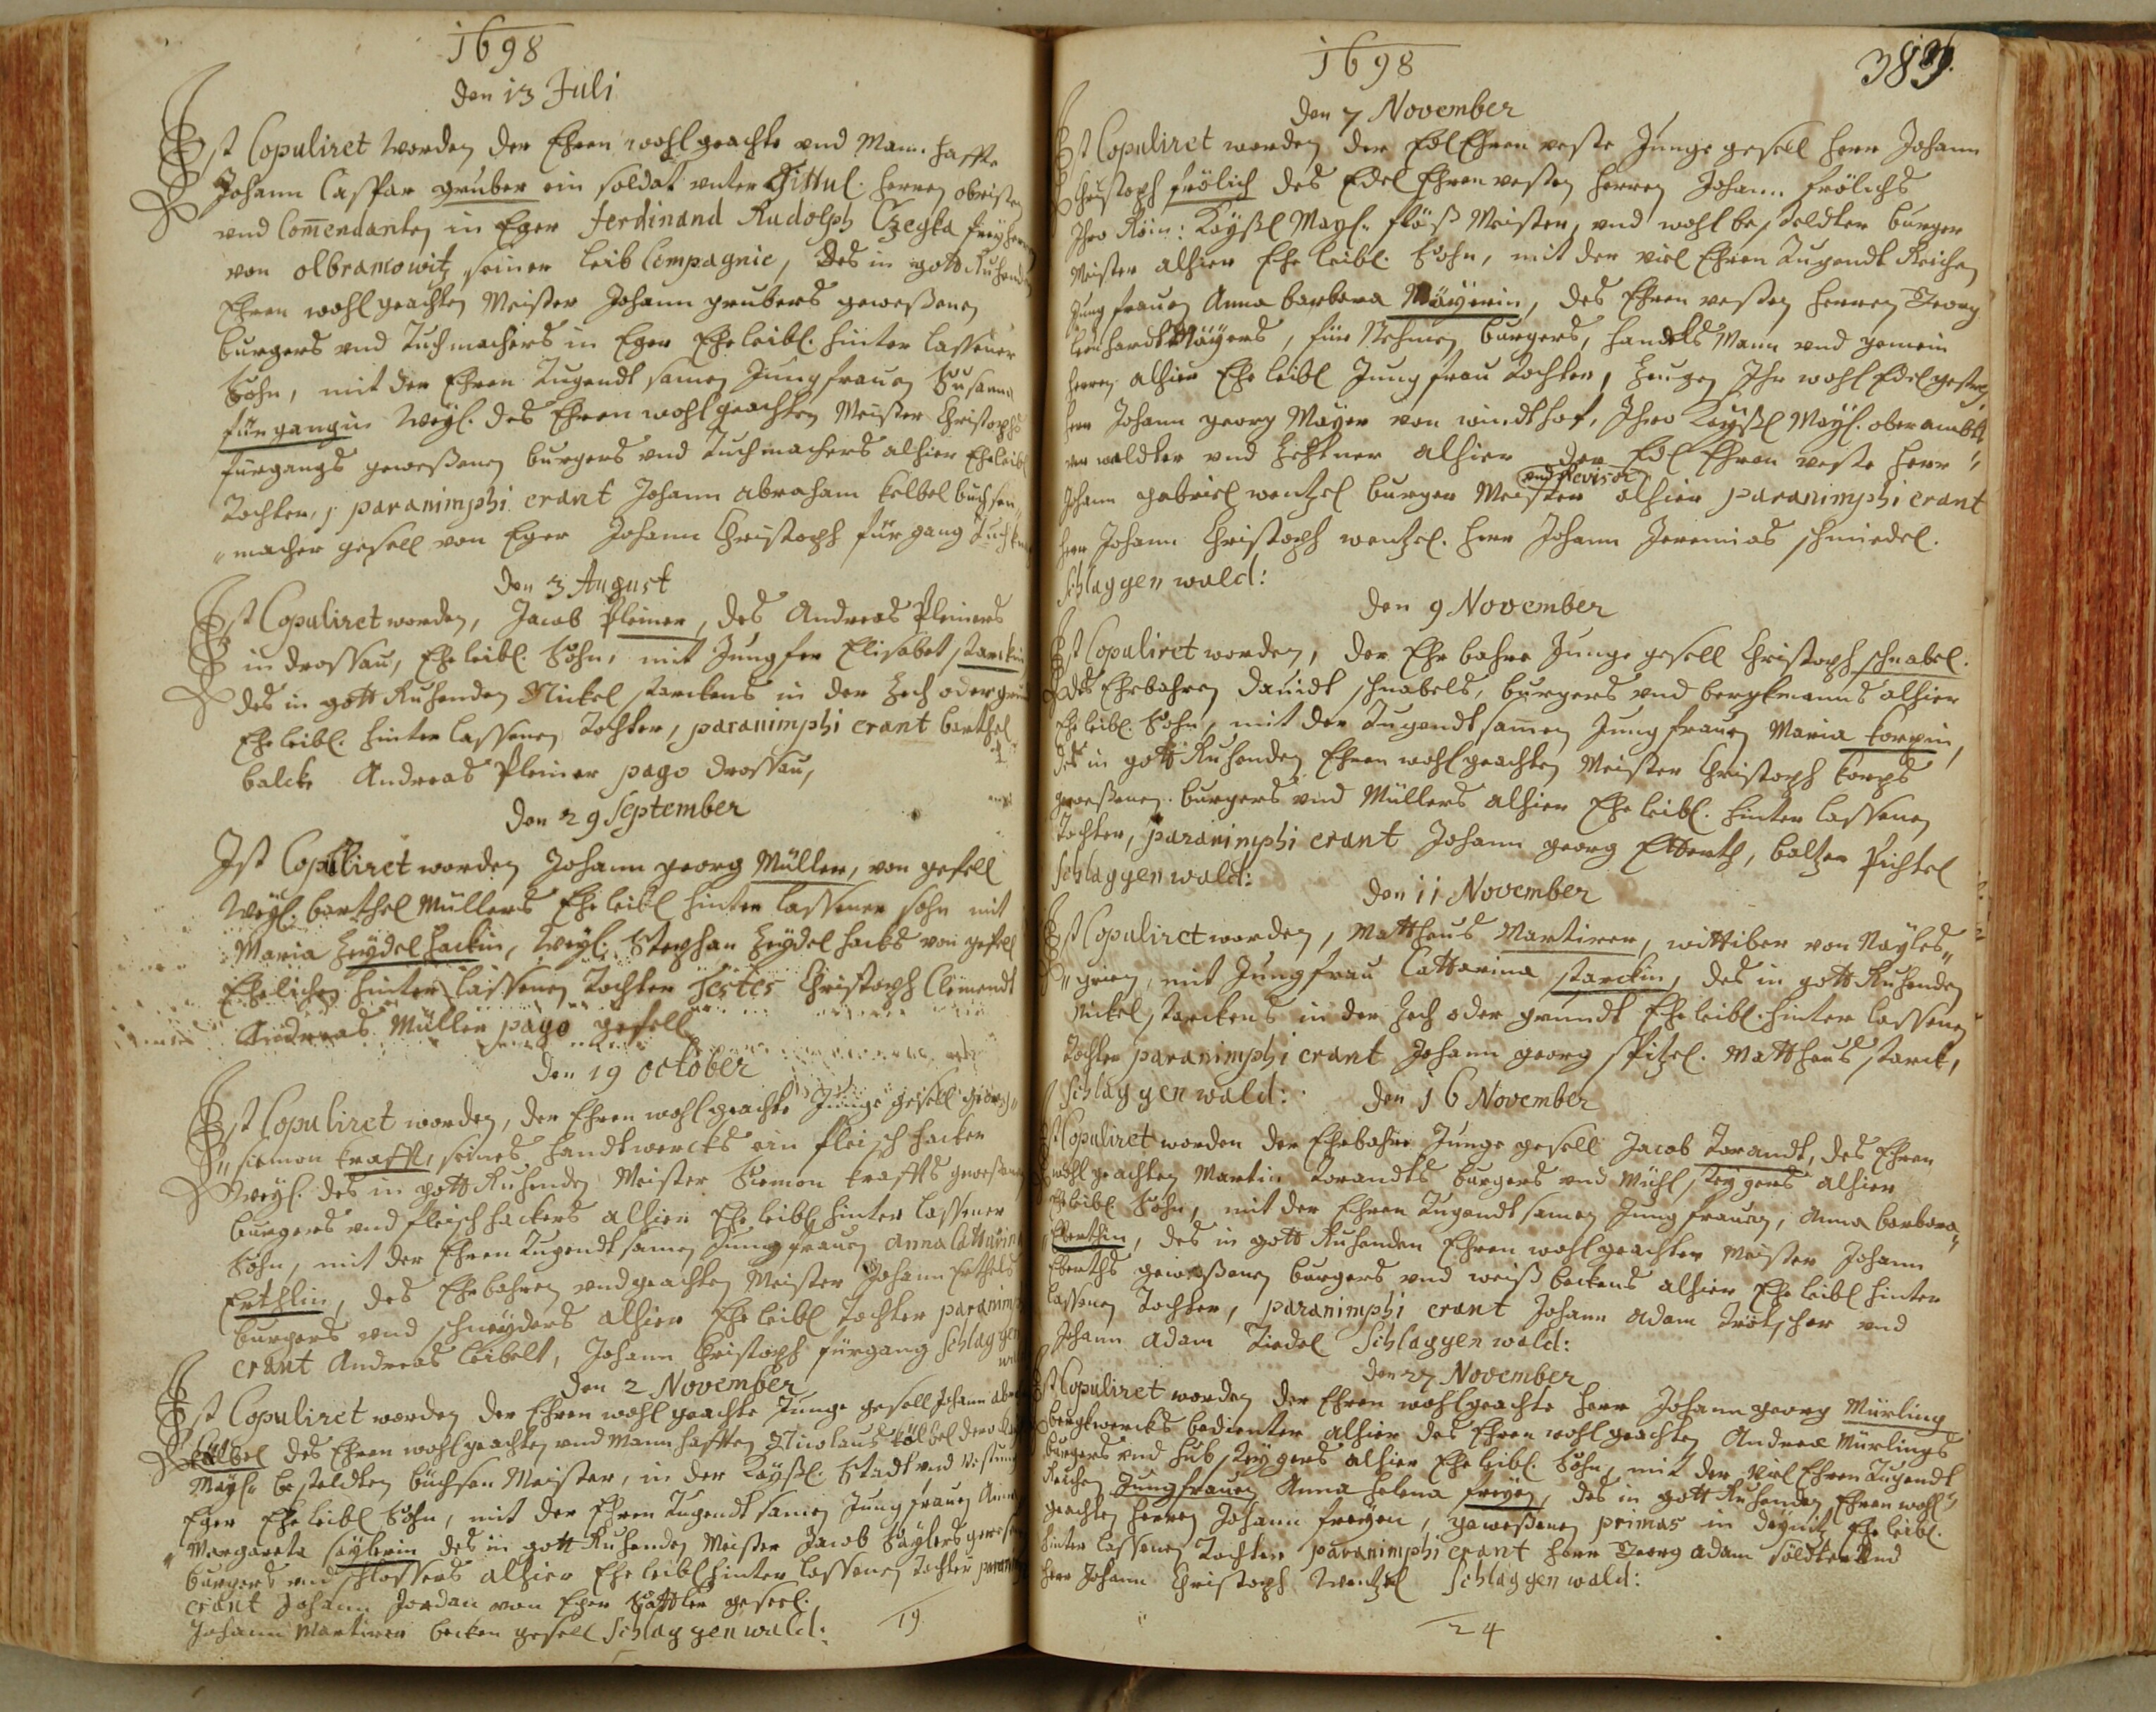 1698
den 13 Juli
Ist Copuliret worden der Ehren wohl geachte und Mann haffte
Johann Casspar gruber ein soldat unter Tittul: herren obristen
und Comendanten in Eger ferdinand Rudolph Czegka freyherr
von olbramowitz seiner leib Compagnie, des in gott Ruhenden
Ehren wohl geachten Meister Johann grubers geweßenen
burgers und Tuchmachers in Eger Eheleibl. hinter lassener
Sohn, mit der Ehren Tugendt samen Jungfrauen Susanna
fürgangin Weyl. des Ehren wohlgeachten Meister Christophs
fürgangs geweßenen burgers und Tuchmachers alhier Eheleibl
Tochter, paranimphi erant Johann abraham kelbel buchsen
macher gesell von Eger Johann Christoph fürgang
den 3 August
Ist Copuliret worden, Jacob Pleiner, des Andreas Pleiners
in drossau, Eheleibl. Sohn, mit Jungfer Elisabet starckin
des in gott Ruhenden Nickel starckens in der Zech oder
Eheleibl. hinter lassenen Tochter, paranimphi erant barthel
balcke Andreas Pleiner pago drossau,
den 29 September
Ist Copuliret worden Johann georg Müller, von gesell
Weyl. barthel Müllers Eheleibl hinter lassener sohn mit
Maria Zeydelhackin, Weyl. Stephan Zeydel hacks von gesell
Ehelichen hinter lassenen Tochter Testes Christoph Clement
Andreas Müller pago gesell
den 19 october
Ist Copuliret worden, der Ehren wohl geachte Junge gesell georg
siemon krafft, seines handtwercks ein fleischhacker
Weyl. des in gott Ruhenden Meister Siemon kraffts geweßenen
burgers und fleischhackers alhier Eheleibl hinter lassener
Sohn, mit der Ehren Tugendt samen Jungfrauen Anna Cattarina
Erthlin, des Ehrbahren und geachten Meister Johann Erthels
burgers und schneyders alhier Eheleibl Tochter paranimphi
erant Andreas leibelt, Johann Christoph fürgang Schlaggen
den 2 November
Ist Copuliret worden der Ehren wohl geachte Junge gesell Johann
kölbel des Ehren wohlgeachten und Mannhafften Nicolaus kölbel dero
Mayl. besteldten büchsen Meister, in der Kayßl. Stadt und
Eger Eheleibl Sohn, mit der Ehren Tugendt samen Jungfrauen Anna
Margareta saylerin des in gott Ruhenden Meister Jacob Saylers
burgers und schlossers alhier Eheleibl hinter lassenen Tochter
erant Johann Jordan von Eger Sattler gesell.
Johann Martirer becken gesell Schlaggenwald:
19
1698
389.
den 7 November
Ist Copuliret worden der Edl Ehren veste Junge gesell herr Johann
Christoph frölich des Edel Ehrenvesten herren Johann frölichs
Ihro Röm: Kayßl Mayl. flöß Meister, und wohl besteldter burger
Meister alhier Eheleibl. Sohn, mit der viel Ehren Tugendt Reichen
Jungfrauen Anna barbara Mäyerin, des Ehren vesten herren Georg
leonhardt Mäyers, für Nehmen burgers, handels Mann und gemein
herren alhier Eheleibl Jungfrau Tochter, Zeugen Ihr wohl Edel gestreng
herr Johann georg Mayer von windthof, Ihro Kayßl Mayl. oberambts
ver walter und Zehtner alhier der Edl Ehren veste herr
und Revisor
Johann gabriel wentzel burger Meister alhier paranimphi erant
herr Johann Christoph wentzel. herr Johann Jeremias schmiedel.
Schlaggenwald:
den 9 November
Ist Copuliret worden, der Ehrbahre Junge gesell Christoph schnabel.
des Ehrbahren Davidt schnabels, burgers und bergkmanns alhier
Eheleibl. Sohn, mit der Tugendtsamen Jungfrauen Maria korpin,
des in gott Ruhenden Ehren wohl geachten Meister Christoph korps
geweßenen burgers und Müllers alhier Eheleibl. hinter lassenen
Tochter, paranimphi erant Johann georg Eberth, baltzer Pichtel
Schlaggenwald:
den 11 November
Ist Copuliret worden, Matthaeus Martirer, wittiber von Nayles
grien, mit Jungfrau Cattarina starckin, des in gott Ruhenden
Nickel starckens in der Zech oder grundt Eheleibl. hinter lassenen
Tochter paranimphi erant Johann georg Spitzel. Matthaeus starck,
Schlaggenwald:
den 16 November
Ist Copuliret worden der Ehrbahre Junge gesell Jacob Torandt, des Ehren
wohl geachten Martin Torandts burgers und Mühl steygers alhier
Eheleibl Sohn, mit der Ehren Tugendt samen Jungfrauen, Anna barbara
Eberthin, des in gott Ruhenden Ehren wohlgeachten Meister Johann
Eberths geweßenen burgers und weiß beckens alhier Eheleibl hinter
lassenen Tochter, paranimphi erant Johann Adam Trötscher und
Johann Adam Tiedel Schlaggenwald:
den 27 November
Ist Copuliret worden der Ehren wohlgeachte herr Johann georg Mürling
bergkwercks bedienter alhier des Ehren wohl geachten Andreae Mürlings
burgers und hub steygers alhier Eheleibl. Sohn, mit der viel Ehren Tugendt
Reichen Jungfrauen Anna helena freyin, des in gott Ruhenden Ehren wohl
geachten herren Johann freyen, geweßenen primas in deynitz Eheleibl.
hinter lassenen Tochter paranimphi erant herr Georg adam söldter und
herr Johann Christoph Wentzel Schlaggenwald:
24